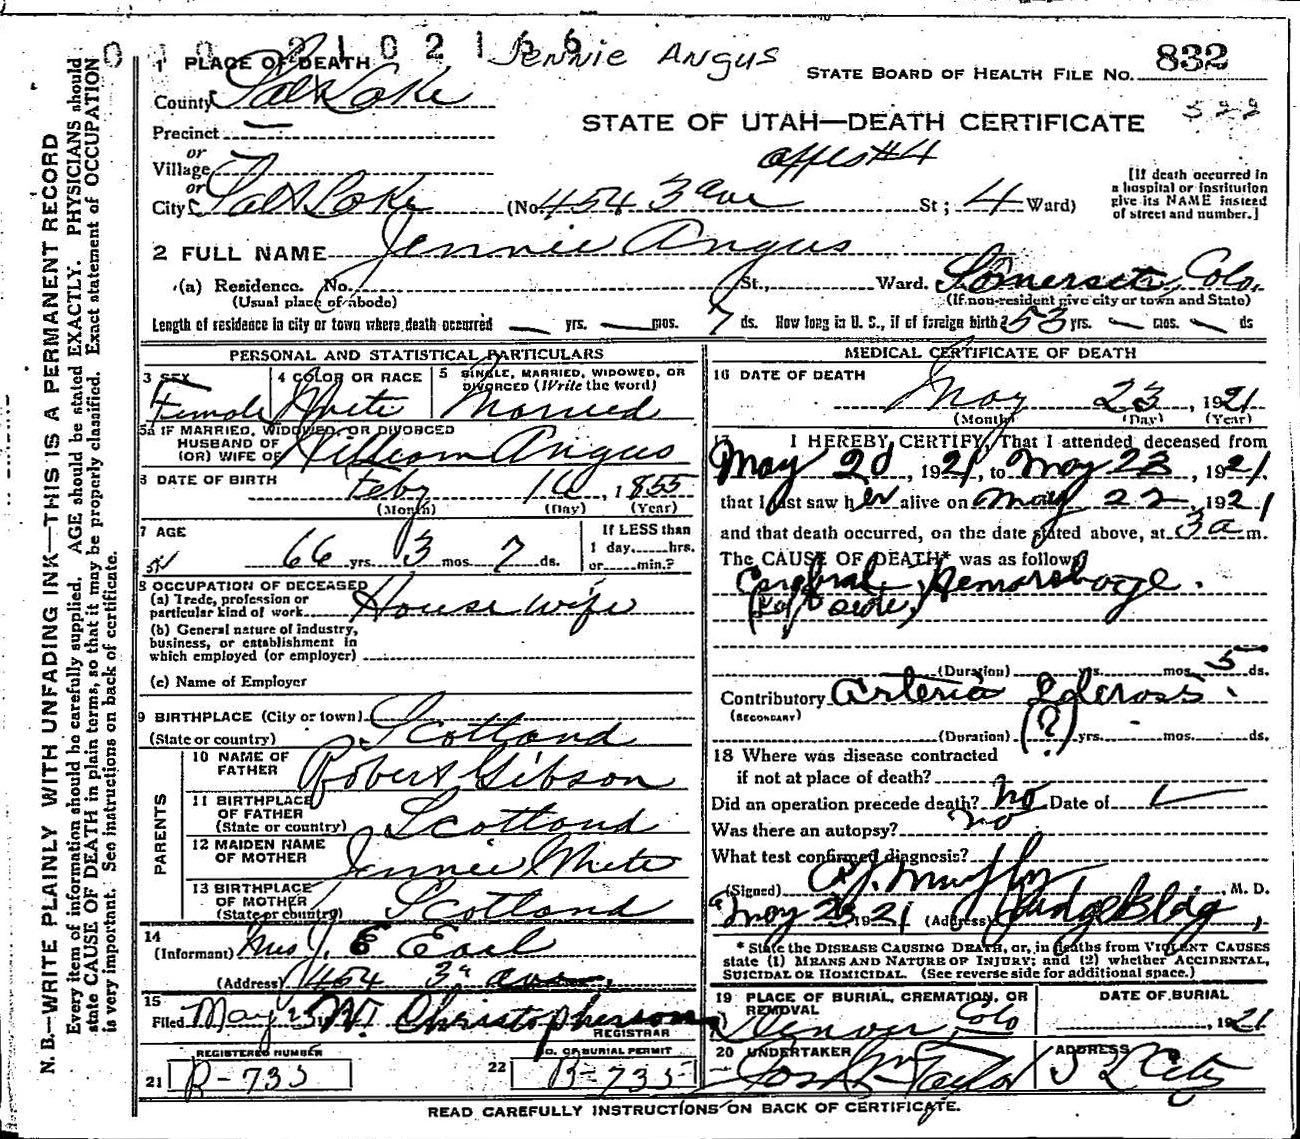 0 1 0 2 1 0 2 1 6 6 Jennie Angus
1 PLACE OF DEATH
STATE BOARD OF HEALTH FILE NO. 832
County Salt Lake
322
Precinct —
STATE OF UTAH—DEATH CERTIFICATE
or
Village
appts #4
or
City Salt Lake (No. 454 3 ave St; 4 Ward)
[If death occurred in
a hospital or institution
give its NAME instead
of street and number.]
2 FULL NAME Jennie Angus
(a) Residence. No. St., Ward. Somerset, Colo.
(Usual place of abode) (If non-resident give city or town and State)
Length of residence in city or town where death occurred — yrs. — mos. 7 ds. How long in U. S., if of foreign birth? 53 yrs. — mos. — ds
PERSONAL AND STATISTICAL PARTICULARS
3 SEX Female
4 COLOR OR RACE White
5 SINGLE, MARRIED, WIDOWED, OR
DIVORCED (Write the word)
Married
5a IF MARRIED, WIDOWED, OR DIVORCED
HUSBAND OF
(OR) WIFE OF William Angus
6 DATE OF BIRTH Feby 16, 1855
(Month) (Day) (Year)
7 AGE 66 yrs. 3 mos. 7 ds.
If LESS than
1 day......hrs.
or......min.?
8 OCCUPATION OF DECEASED
(a) Trade, profession or
particular kind of work House wife
(b) General nature of industry,
business, or establishment in
which employed (or employer)
(c) Name of Employer
9 BIRTHPLACE (City or town)
(State or country) Scotland
PARENTS
10 NAME OF
FATHER Robert Gibson
11 BIRTHPLACE
OF FATHER
(State or country) Scotland
12 MAIDEN NAME
OF MOTHER Jennie White
13 BIRTHPLACE
OF MOTHER
(State or country) Scotland
14
(Informant) Mrs J. E Earl
(Address) 454 3rd ave.
15
Filed May 23 W. T. Christopherson
REGISTRAR
REGISTERED NUMBER
21 B-735
NO. OF BURIAL PERMIT
22 B-735
MEDICAL CERTIFICATE OF DEATH
16 DATE OF DEATH
May 23, 1921
(Month) (Day) (Year)
17 I HEREBY CERTIFY, That I attended deceased from
May 20, 1921, to May 23, 1921.
that I last saw her alive on May 22, 1921
and that death occurred, on the date stated above, at 3 a m.
The CAUSE OF DEATH* was as follows
Cerebral Hemorrhage.
(left side)
(Duration) yrs. mos. 5 ds.
Contributory Arterio Sclerosis.
(SECONDARY)
(Duration) (?) yrs. mos. ds.
18 Where was disease contracted
if not at place of death?
Did an operation precede death? No Date of
Was there an autopsy? no
What test confirmed diagnosis?
(Signed) Murphy, M. D.
May 23 1921 (Address) Judge Bldg,
* State the DISEASE CAUSING DEATH, or, in deaths from VIOLENT CAUSES
state (1) MEANS AND NATURE OF INJURY; and (2) whether ACCIDENTAL,
SUICIDAL OR HOMICIDAL. (See reverse side for additional space.)
19 PLACE OF BURIAL, CREMATION, OR
REMOVAL
Denver, Colo
DATE OF BURIAL
, 1921
20 UNDERTAKER
Jos Wm Taylor
ADDRESS
S L City
READ CAREFULLY INSTRUCTIONS ON BACK OF CERTIFICATE.
N. B.—WRITE PLAINLY WITH UNFADING INK—THIS IS A PERMANENT RECORD
Every item of information should be carefully supplied. AGE should be stated EXACTLY. PHYSICIANS should
state CAUSE OF DEATH in plain terms, so that it may be properly classified. Exact statement of OCCUPATION
is very important. See instructions on back of certificate.